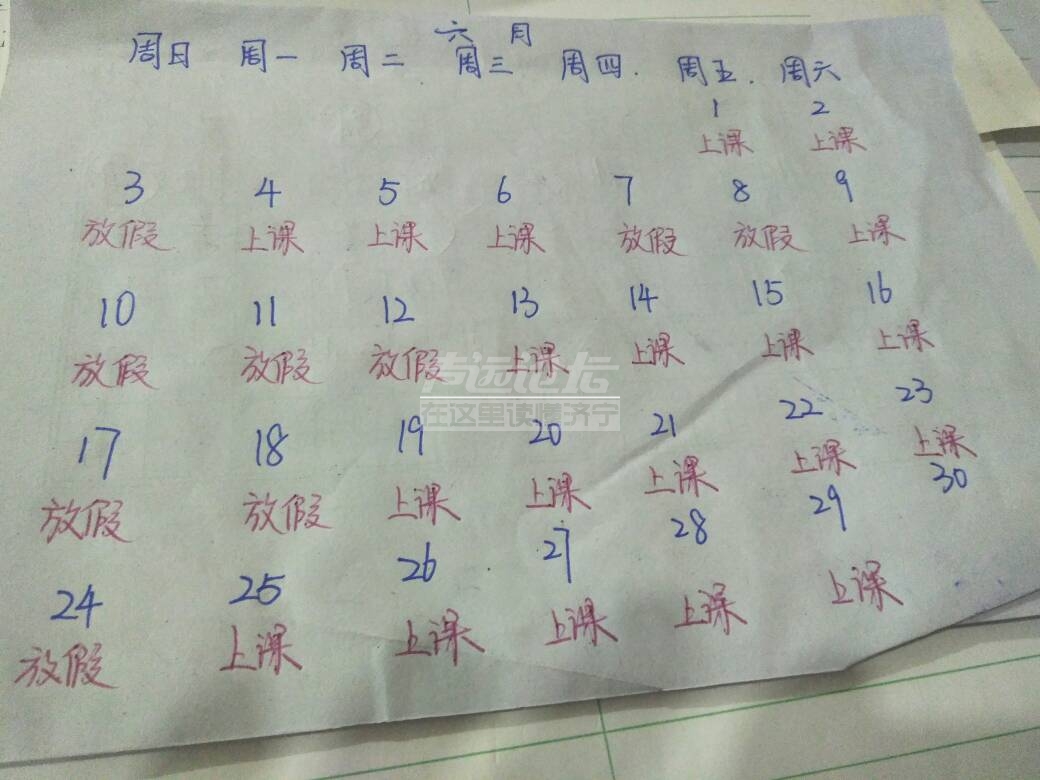 六 月
周日 周一 周二 周三 周四. 周五. 周六
1 2
上课 上课
3 4 5 6 7 8 9
放假 上课 上课 上课 放假 放假 上课
10 11 12 13 14 15 16
放假 放假 放假 上课 上课 上课 上课
17 18 19 20 21 22 23
放假 放假 上课 上课 上课 上课 上课
24 25 26 27 28 29 30
放假 上课 上课 上课 上课 上课
在这里读懂济宁